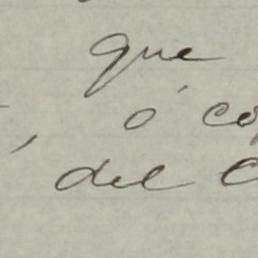 que
, ó co
del C